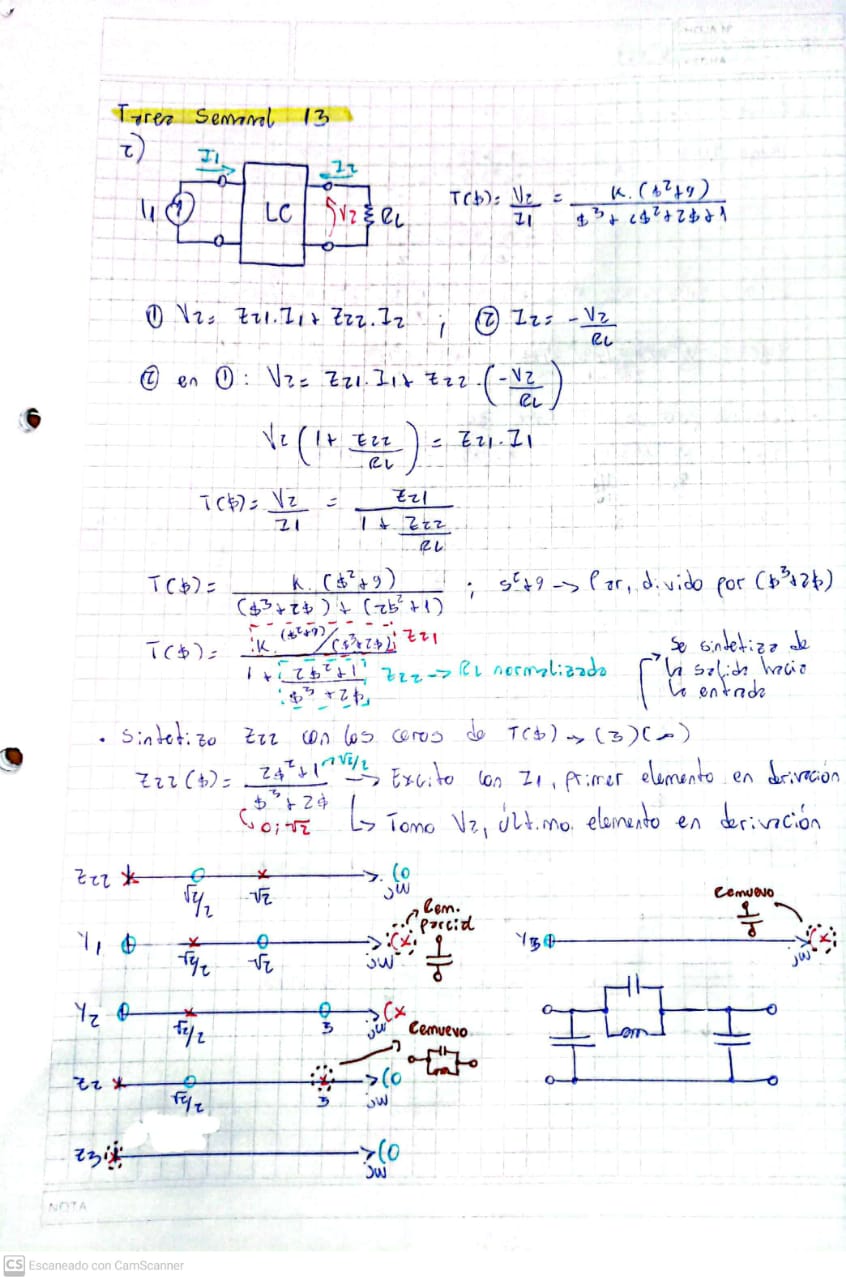 Tarea Semanal 13
2)
I1
I2
I1
LC
V2
RL
T($)= V2/I1 = K.($²+9)/($³+2$²+2$+1)
① V2= Z21.I1+ Z22.I2 ; ② I2= -V2/RL
② en ①: V2= Z21.I1+ Z22.(-V2/RL)
V2(1+ Z22/RL) = Z21.I1
T($)= V2/I1 = Z21/(1+ Z22/RL)
T($)= K.($²+9)/(($³+2$)+(2$²+1)) ; $²+9 -> Par, divido por ($³+2$)
T($)= K.($²+9)/($³+2$) Z21
1+ 2$²+1/$³+2$ Z22 -> RL normalizado
Se sintetiza de
la salida hacia
la entrada
• Sintetizo Z22 con los ceros de T($) -> (3)(∞)
Z22($)= 2$²+1/$³+2$ √2/2 -> Excito con I1, primer elemento en derivación
0;√2 Tomo V2, último elemento en derivación
Z22 √2/2 √2 jw
Rem.
parcial
Y1 √2/2 √2 jw
Remuevo
Y3 jw
Y2 √2/2 3 jw
Remuevo
Z2 √2/2 3 jw
Z3 jw
NOTA
CS Escaneado con CamScanner